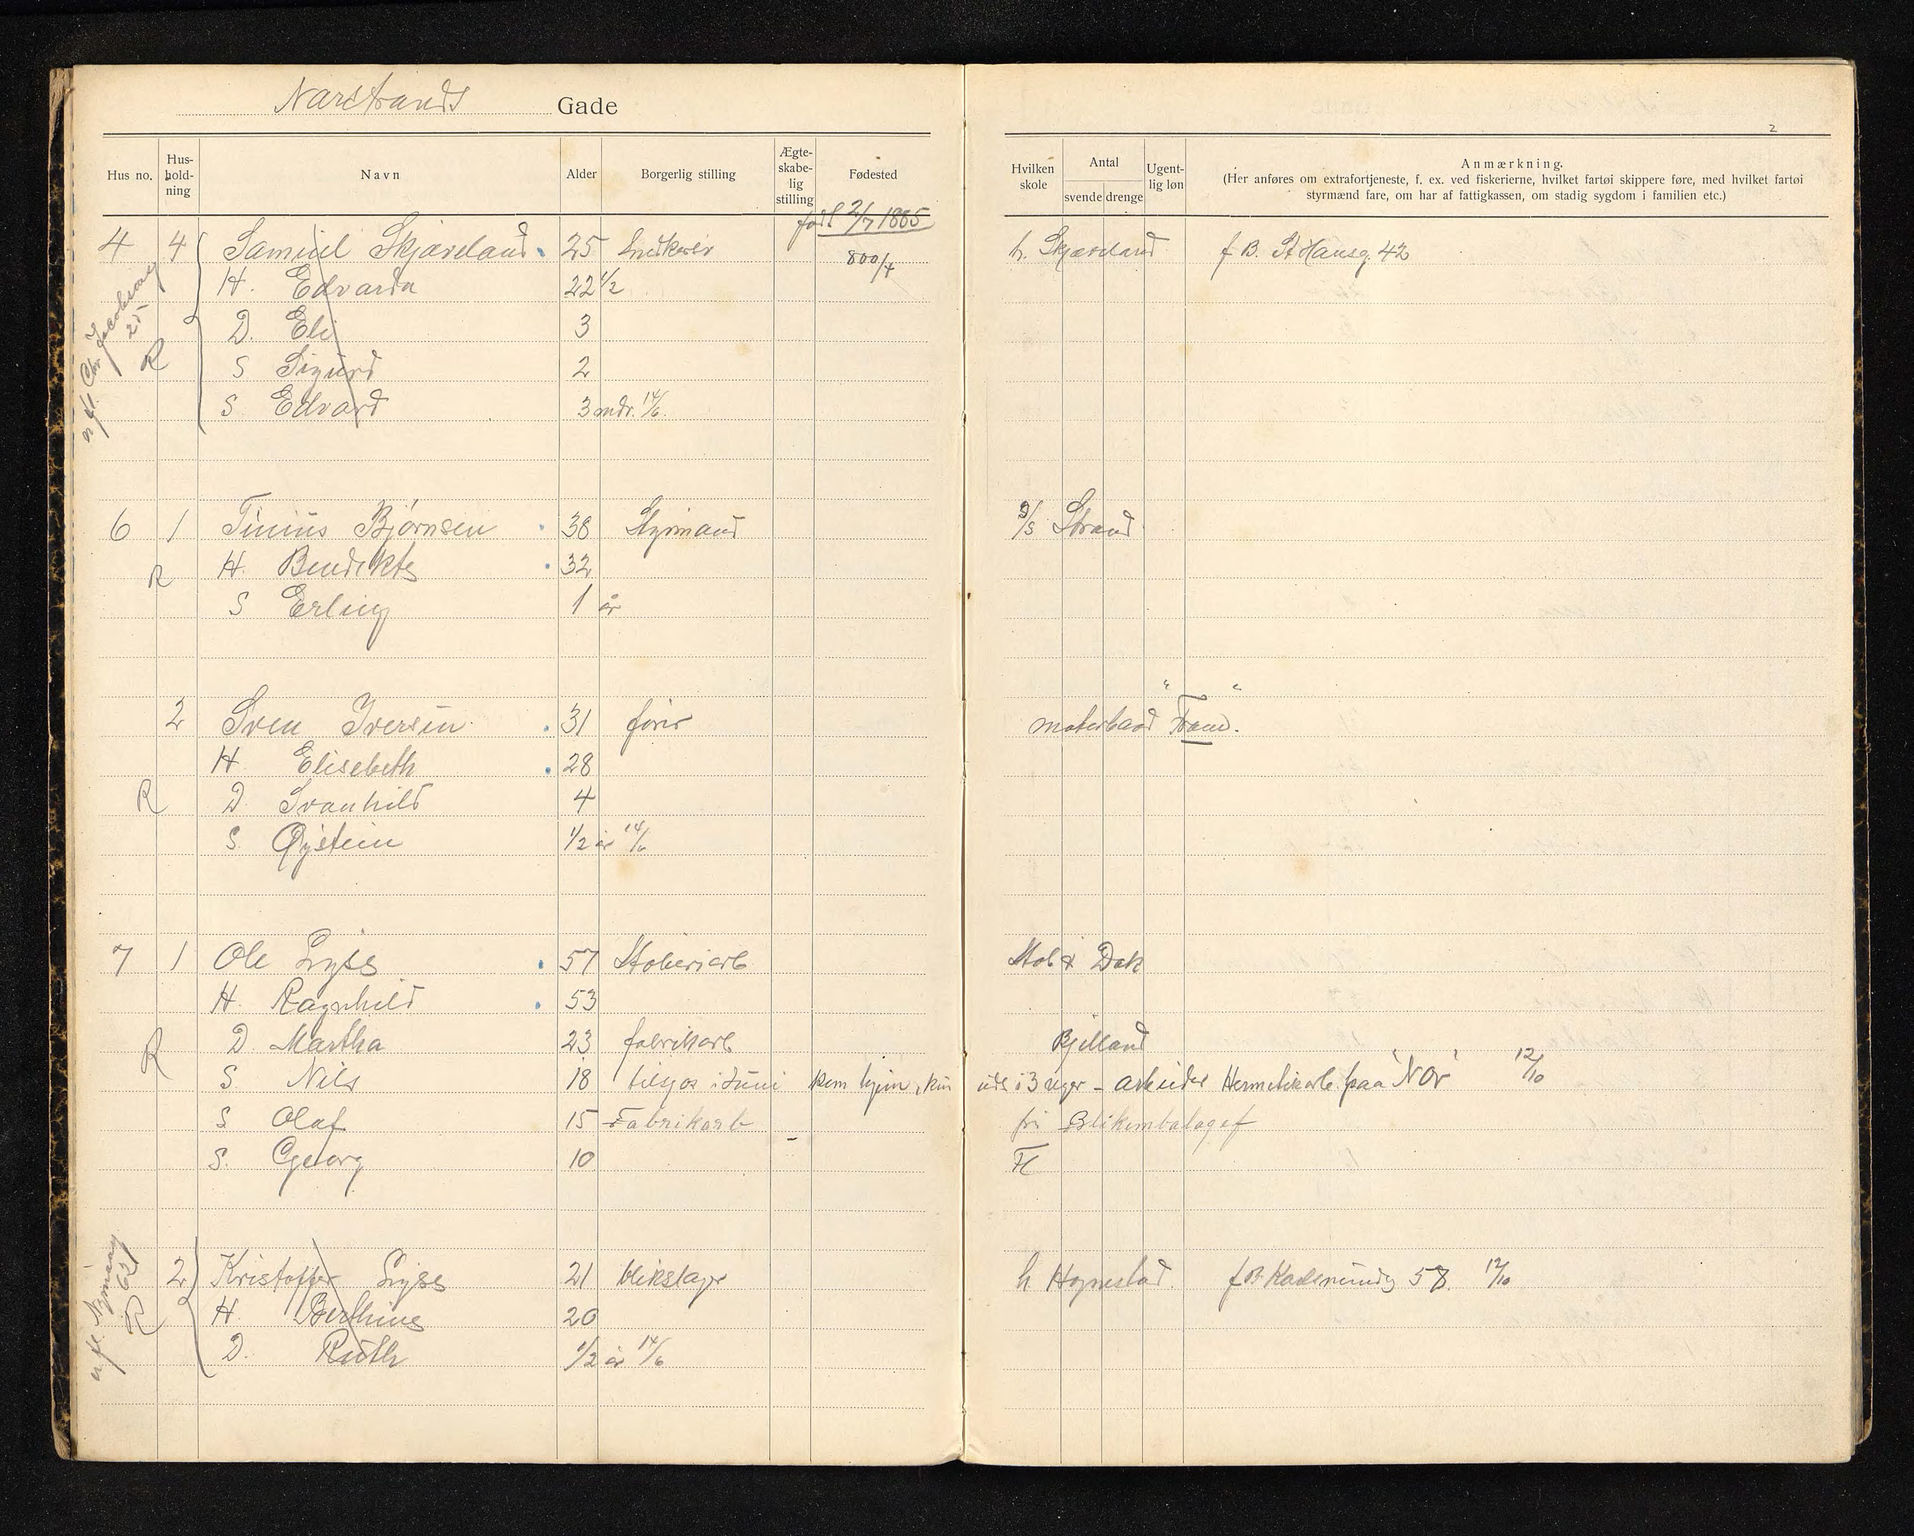 Narstrands Gade
2
Hus no. Hus-hold-ning Navn Alder Borgerlig stilling Ægte-skabe-lig stilling Fødested Hvilken skole Antal svende drenge Ugent-lig løn Anmærkning.
(Her anføres om extrafortjeneste, f. ex. ved fiskerierne, hvilket fartøi skippere føre, med hvilket fartøi
styrmænd fare, om har af fattigkassen, om stadig sygdom i familien etc.)
født 2/7 1885
4 4 Samuel Skjæveland 25 h. Skjæveland f B. St Hansg. 42
800/4
H. Edvarda 22 1/2
D. Eli 3
S Sigurd 2
S. Edvard 3 mdr. 14/6.
n fl. Chr. Jacobsvay
25
R
6 1 Tinius Bjørnsen 38 Styrmand D/S Strand
H. Bendikte 32
R
S Erling 1 år
2 Sven Iversen 31 fører motorbaad "Fram".
H Elisebeth 28
R D. Svanhild 4
S. Øystein 1/2 år 14/6
7 1 Ole Lyse 57 Støberiarb Støb & Dok
H. Ragnhild 53
R D. Martha 23 fabrikarb Bjelland
S. Nils 18 tilsjøs i Juni kom hjem, kun ude i 3 uger - arbeider Hermetikarb. paa "Nor" 12/10
S Olaf 15 Fabrikarb fri Blikembalagef
S. Georg 10 Fl
2 Kristoffer Lyse 21 blikslager h Hognestad. f B Kadsmundg 58. 12/10
H Berthine 20
D. Ruth 1/2 år 14/6
n fl. Nymaay
R 62